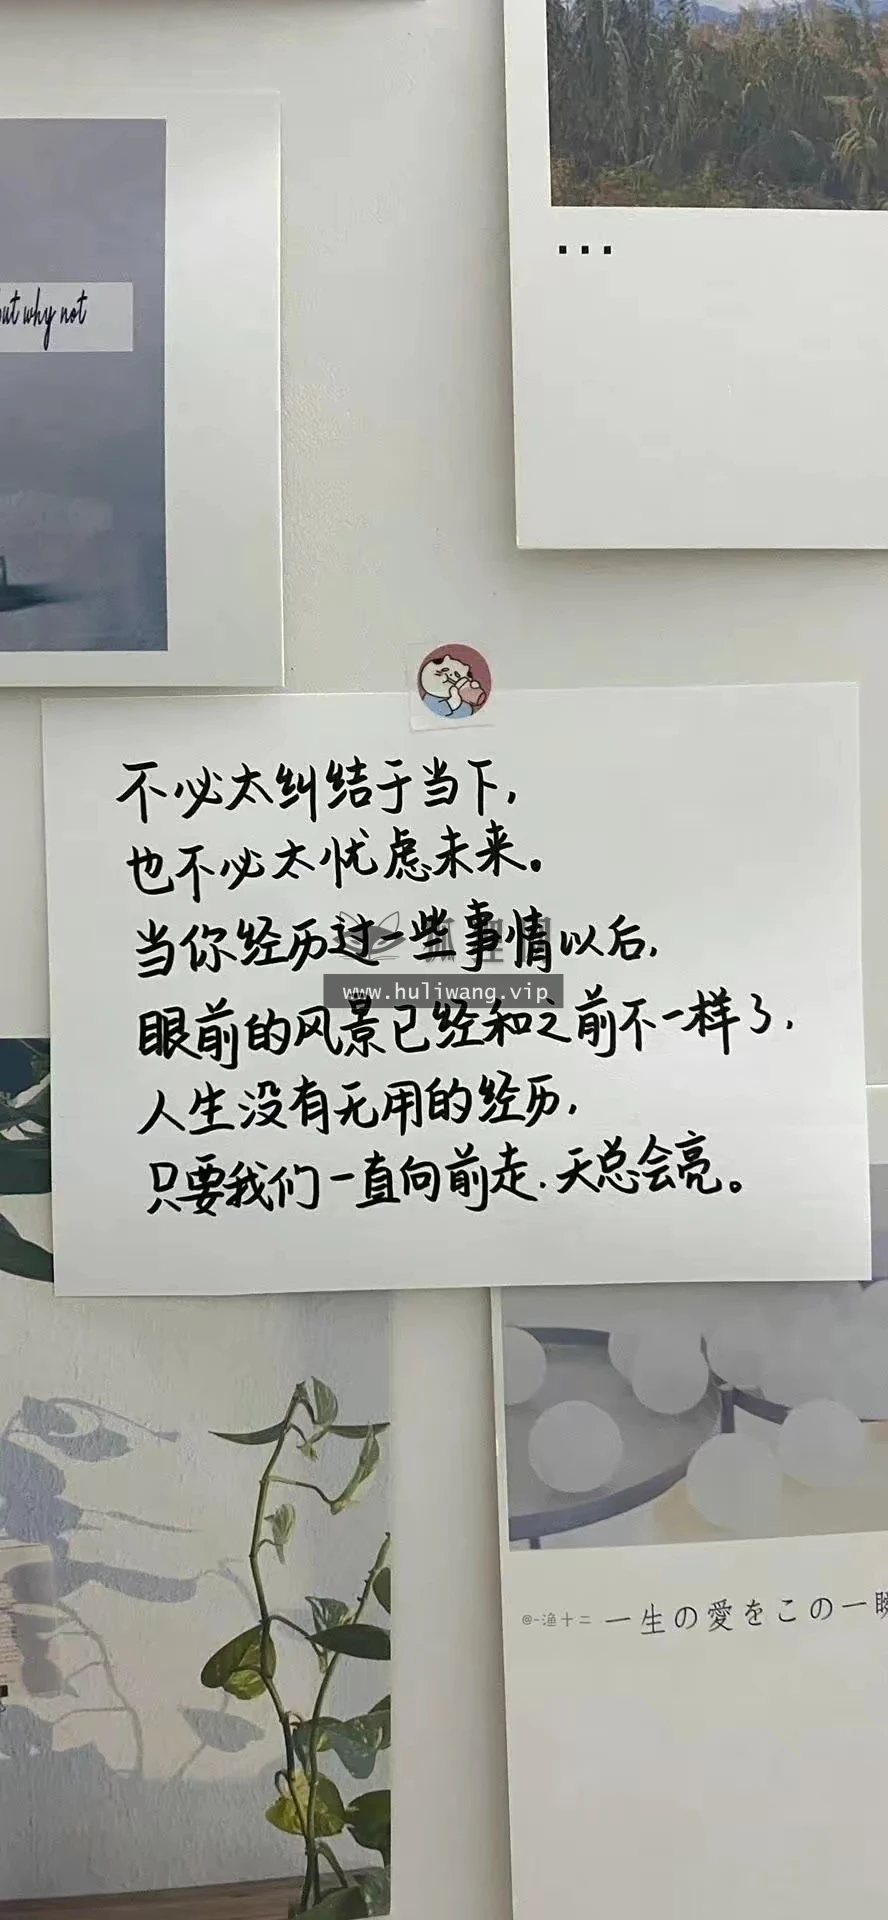 but why not
...
不必太纠结于当下,
也不必太忧虑未来。
当你经历过一些事情以后,
狐狸网
www.huliwang.vip
眼前的风景已经和之前不一样了,
人生没有无用的经历,
只要我们一直向前走.天总会亮。
@-渔十二 一生の愛をこの一瞬